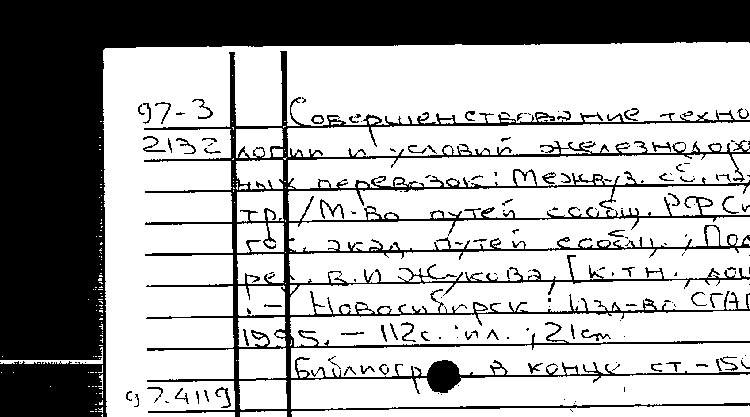 97-3 Совершенствование техно
2132 логии и условий железнодоро
ных перевозок: Межвуз. сб. на
тр. / М-во путей сообщ. РФ Си
гос. акад. путей сообщ. ; Под
ред. В.И Жукова, [к.т.н., доц
! - Новосибирск : Изд-во СГАП
1995. - 112с. : ил. ; 21см.
Библиогр. в конце ст. - 150
97.4119